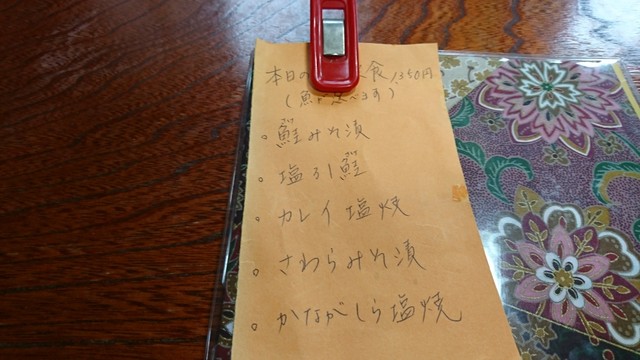 本日の 食 1350円
(魚
・鮭みそ漬
・塩引鮭
・カレイ塩焼
・さわらみそ漬
・かながしら塩焼